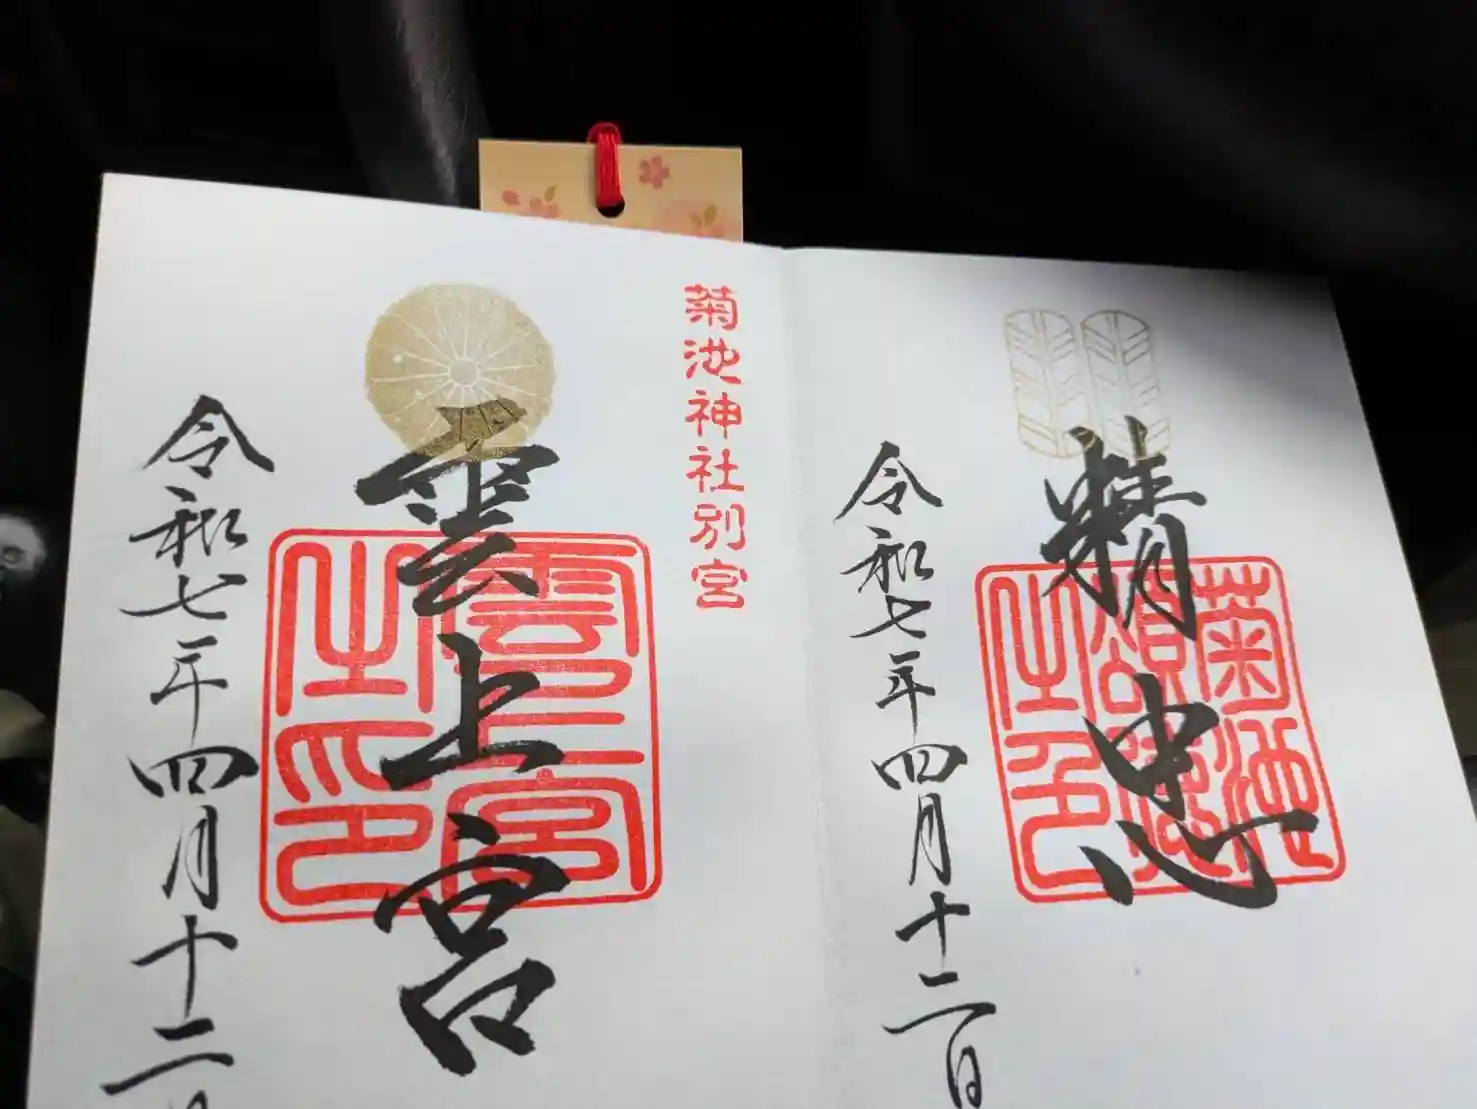 精忠
菊池
之印
令和七年四月十二日
菊池神社別宮
雲上宮
雲上宮
之印
令和七年四月十二日